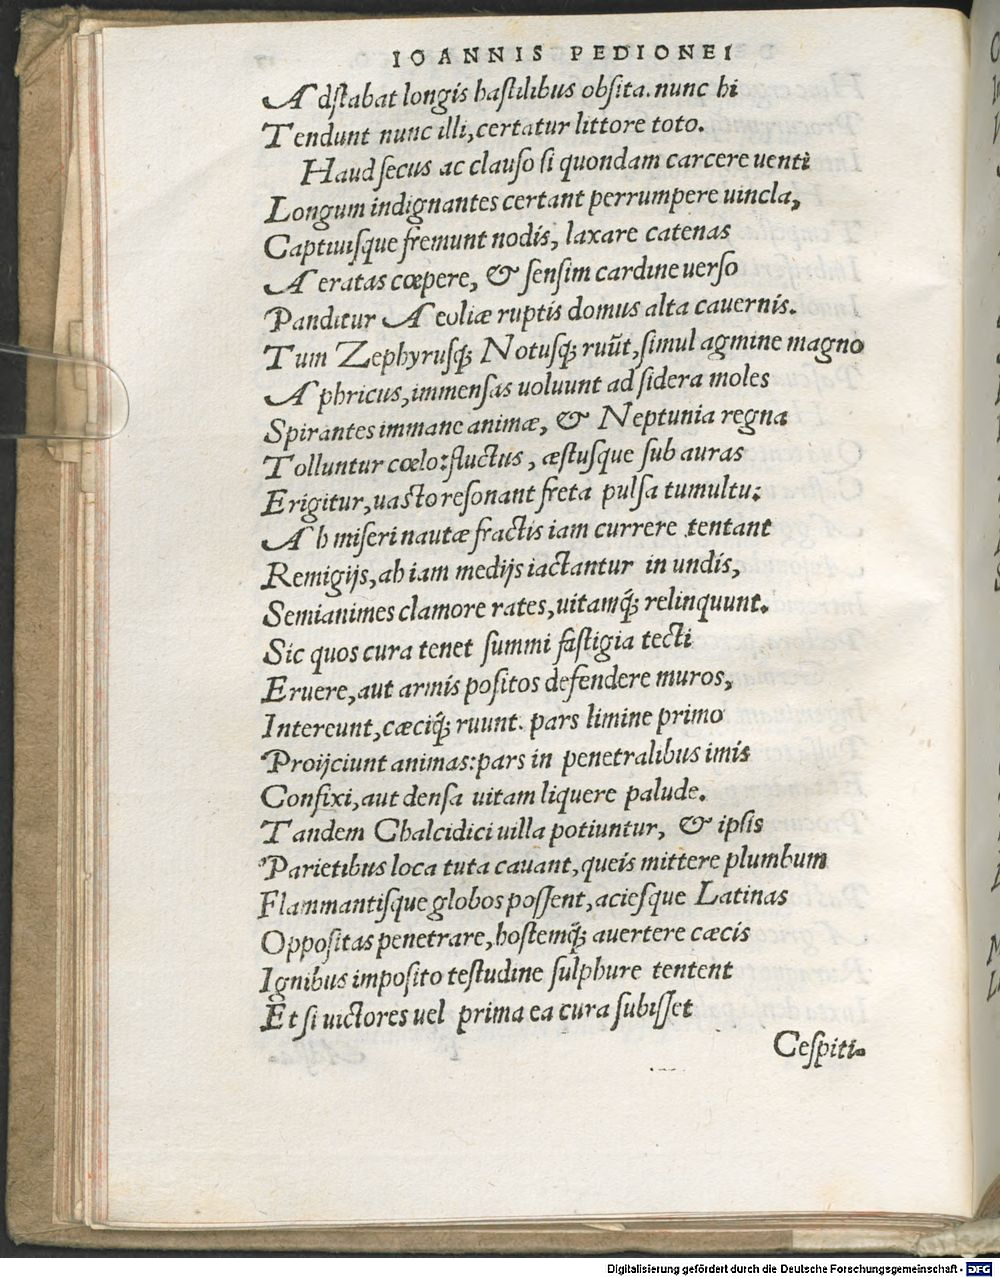 IOANNIS PEDIONEI
Adſtabat longis haſtilibus obſita. nunc hi
Tendunt nunc illi, certatur littore toto.
Haud ſecus ac clauſo ſi quondam carcere uenti
Longum indignantes certant perrumpere uincla,
Captiuiſque fremunt nodis, laxare catenas
Aeratas cœpere, & ſenſim cardine uerſo
Panditur Aeoliæ ruptis domus alta cauernis.
Tum Zephyrusq́; Notusq́; ruũt, ſimul agmine magno
Aphricus, immenſas uoluunt ad ſidera moles
Spirantes immane animæ, & Neptunia regna
Tolluntur cœlo: fluctus, æſtuſque ſub auras
Erigitur, uaſto reſonant freta pulſa tumultu:
Ah miſeri nautæ fractis iam currere tentant
Remigijs, ah iam medijs iactantur in undis,
Semianimes clamore rates, uitamq́; relinquunt.
Sic quos cura tenet ſummi faſtigia tecti
Eruere, aut armis poſitos defendere muros,
Intereunt, cæciq́; ruunt. pars limine primo
Proijciunt animas: pars in penetralibus imis
Confixi, aut denſa uitam liquere palude.
Tandem Chalcidici uilla potiuntur, & ipſis
Parietibus loca tuta cauant, queis mittere plumbum
Flammantiſque globos poſſent, acieſque Latinas
Oppoſitas penetrare, hoſtemq́; auertere cæcis
Ignibus impoſito teſtudine ſulphure tentent
Et ſi uictores uel prima ea cura ſubiſſet
Ceſpiti-
Digitalisierung gefördert durch die Deutsche Forschungsgemeinschaft - DFG